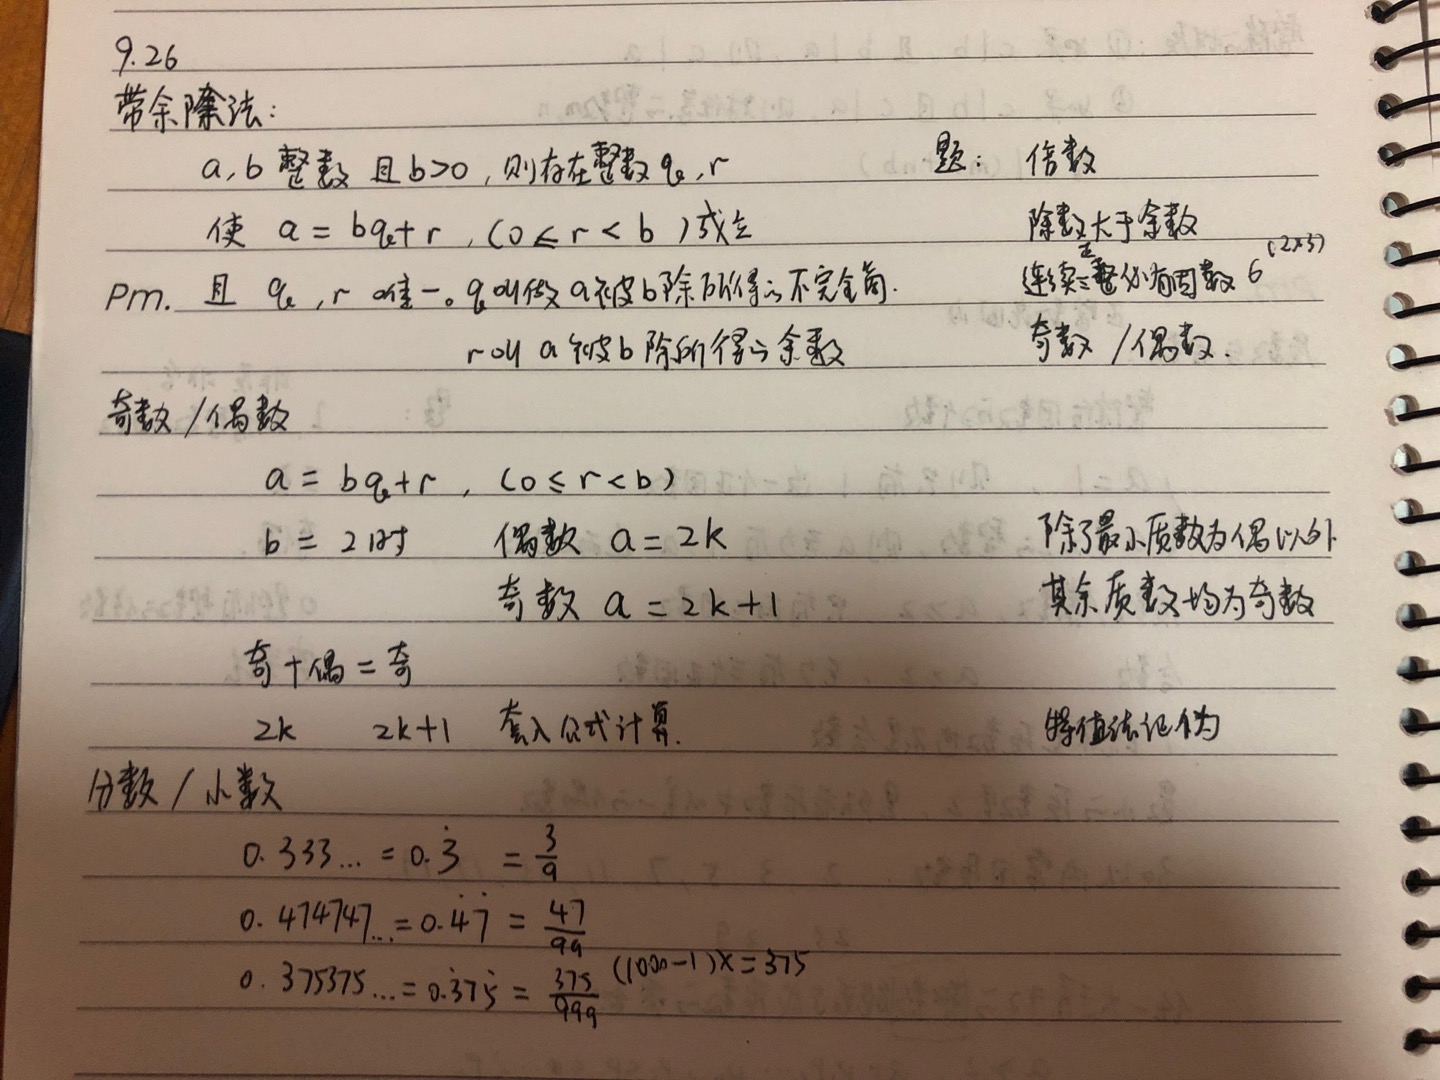 9.26
带余除法:
a,b 整数 且 b>0,则存在整数 q,r 题: 倍数
使 a = bq+r ,(0≤r<b)成立 除数大于余数
Pm. 且 q,r 唯一。q叫做a被b除所得的不完全商. 连续三正整必有因数6 (2×3)
r叫a被b除所得的余数 奇数/偶数.
奇数/偶数
a = bq+r ,(0≤r<b)
b = 2时 偶数 a = 2k 除了最小质数为偶以外
奇数 a = 2k+1 其余质数均为奇数
奇+偶=奇
2k 2k+1 套入公式计算. 特值法证伪
分数/小数
0.333... = 0.3̇ = 3/9
0.474747... = 0.4̇7̇ = 47/99
0.375375... = 0.3̇75̇ = 375/999 (1000-1)x=375